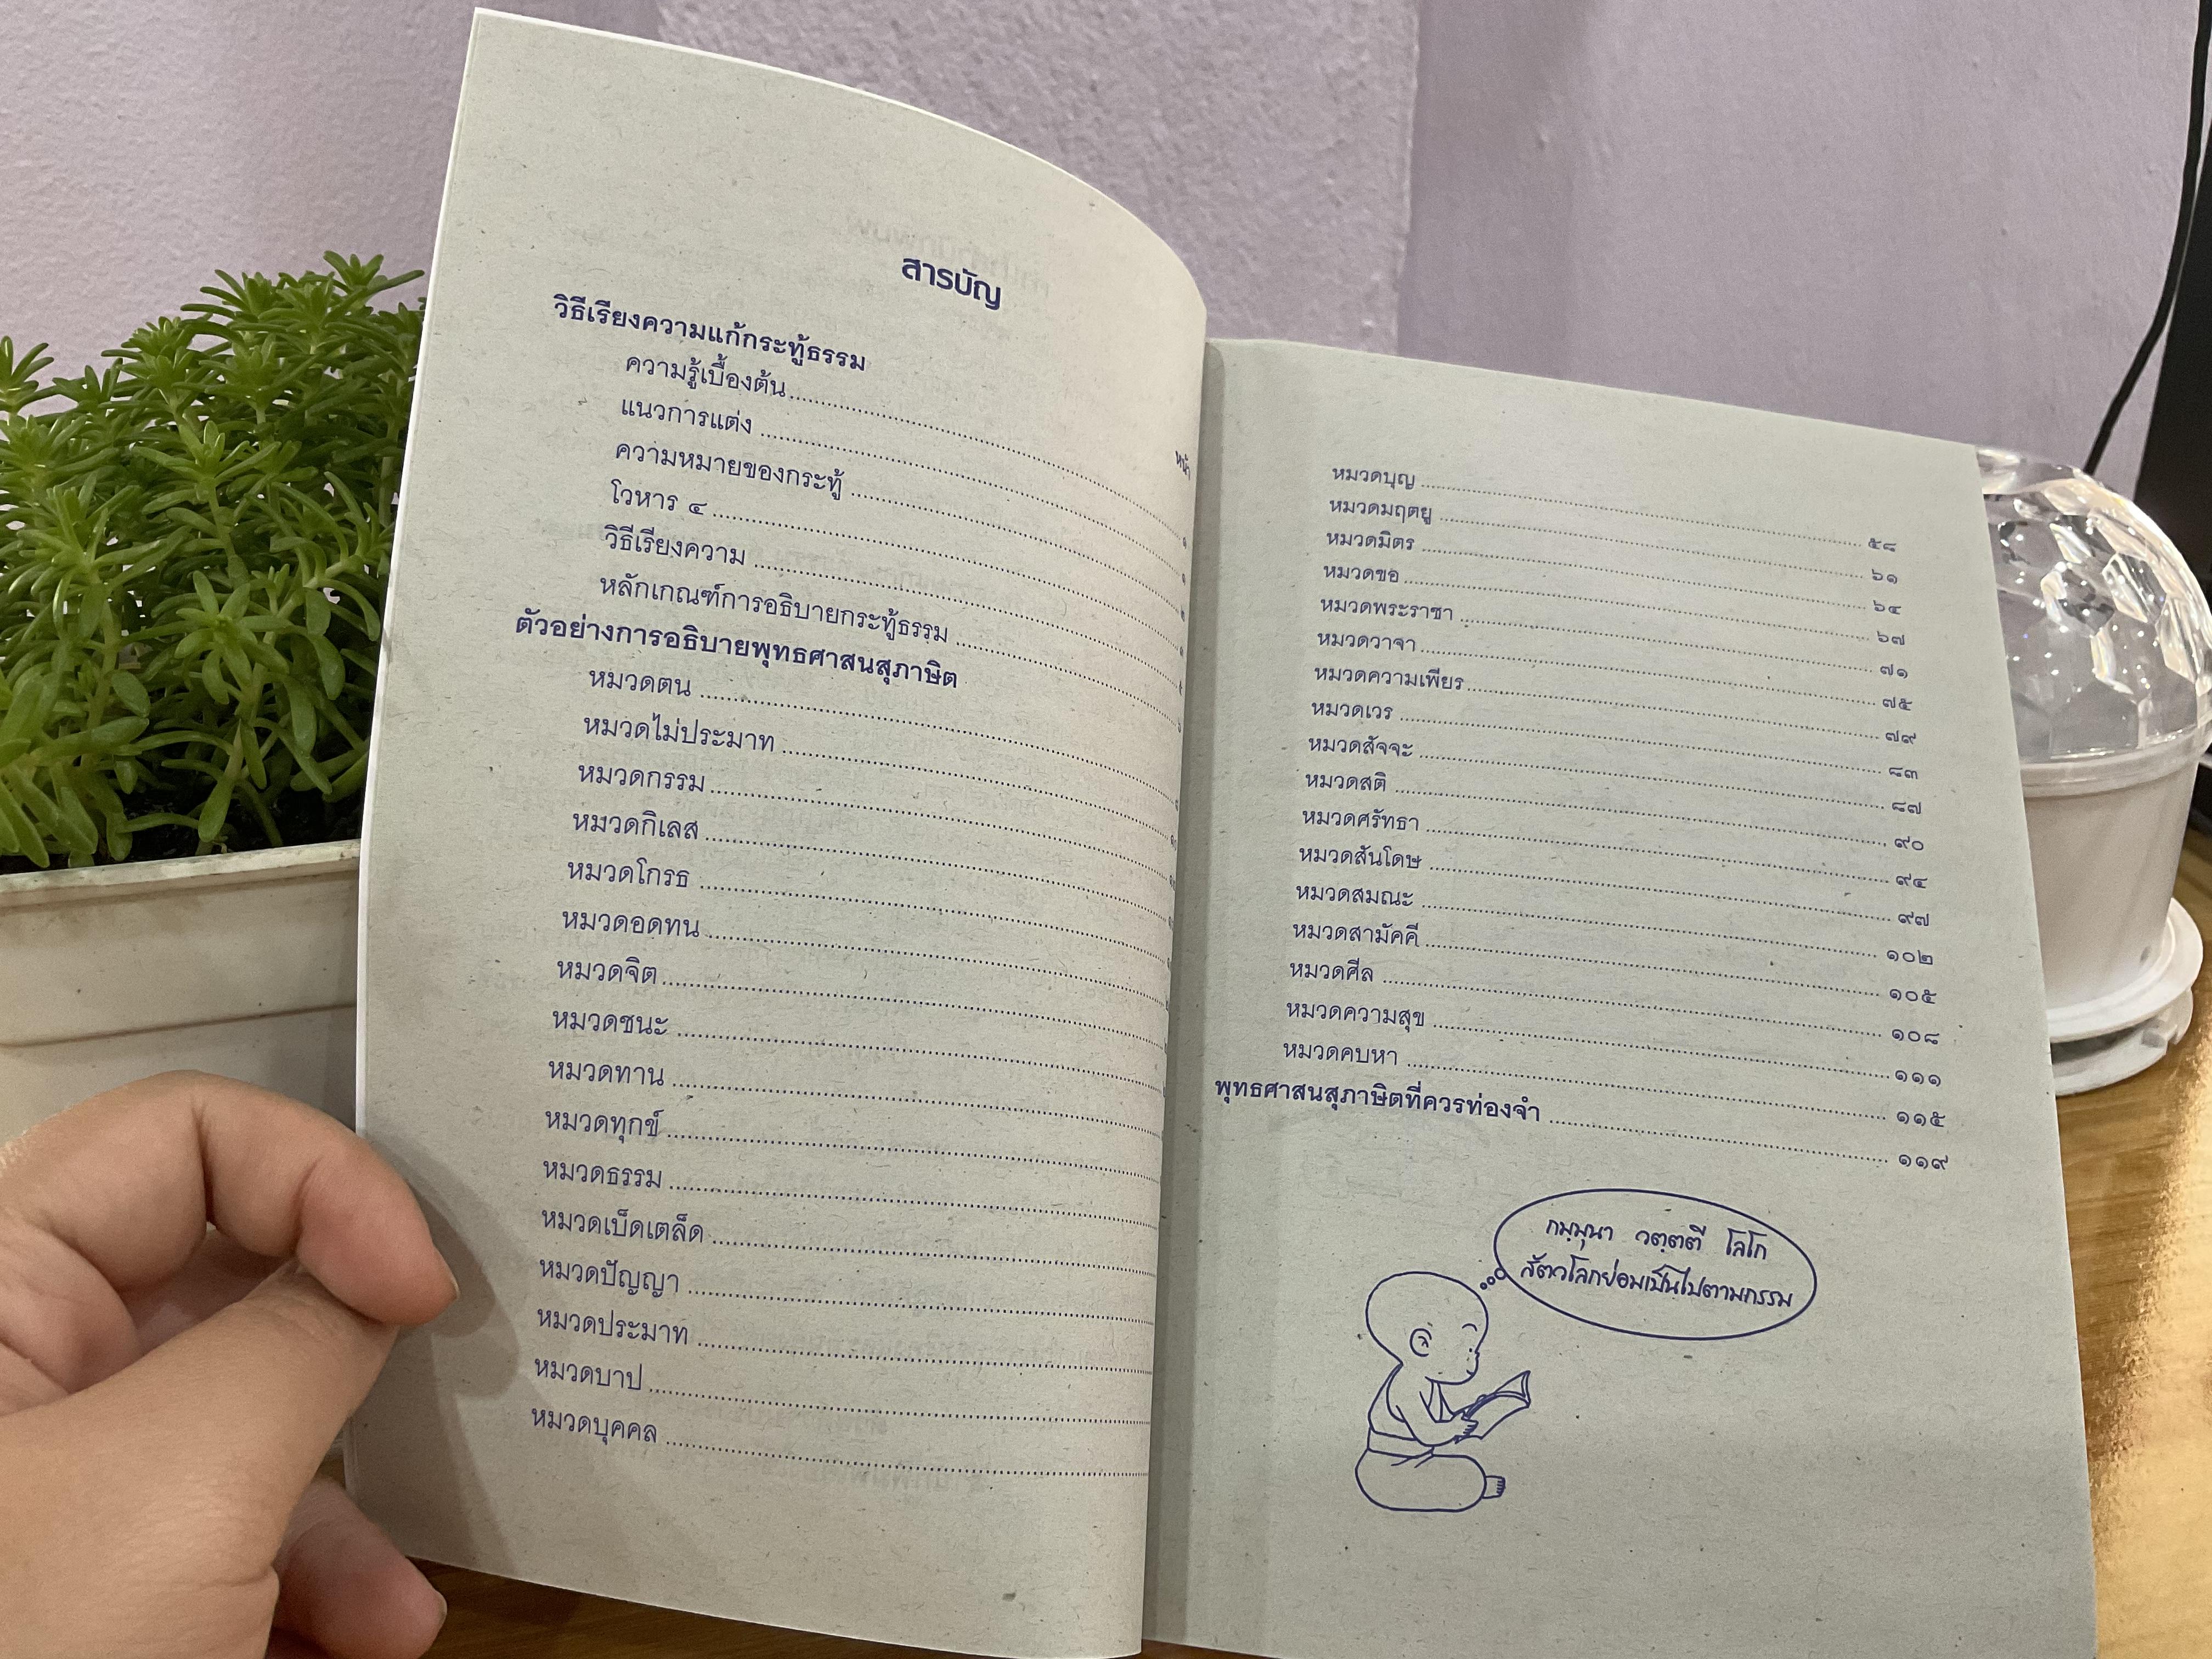 สารบัญ
หน้า
วิธีเรียงความแก้กระทู้ธรรม
ความรู้เบื้องต้น
แนวการแต่ง
ความหมายของกระทู้
โวหาร ๔
วิธีเรียงความ
หลักเกณฑ์การอธิบายกระทู้ธรรม
ตัวอย่างการอธิบายพุทธศาสนสุภาษิต
หมวดตน
หมวดไม่ประมาท
หมวดกรรม
หมวดกิเลส
หมวดโกรธ
หมวดอดทน
หมวดจิต
หมวดชนะ
หมวดทาน
หมวดทุกข์
หมวดธรรม
หมวดเบ็ดเตล็ด
หมวดปัญญา
หมวดประมาท
หมวดบาป
หมวดบุคคล
หมวดบุญ ๕๘
หมวดมฤตยู ๖๑
หมวดมิตร ๖๔
หมวดขอ ๖๗
หมวดพระราชา ๗๑
หมวดวาจา ๗๕
หมวดความเพียร ๗๙
หมวดเวร ๘๓
หมวดสัจจะ ๘๗
หมวดสติ ๙๐
หมวดศรัทธา ๙๔
หมวดสันโดษ ๙๗
หมวดสมณะ ๑๐๒
หมวดสามัคคี ๑๐๕
หมวดศีล ๑๐๘
หมวดความสุข ๑๑๑
หมวดคบหา ๑๑๕
พุทธศาสนสุภาษิตที่ควรท่องจำ ๑๑๙
กมฺมุนา วตฺตตี โลโก
สัตวโลกย่อมเป็นไปตามกรรม